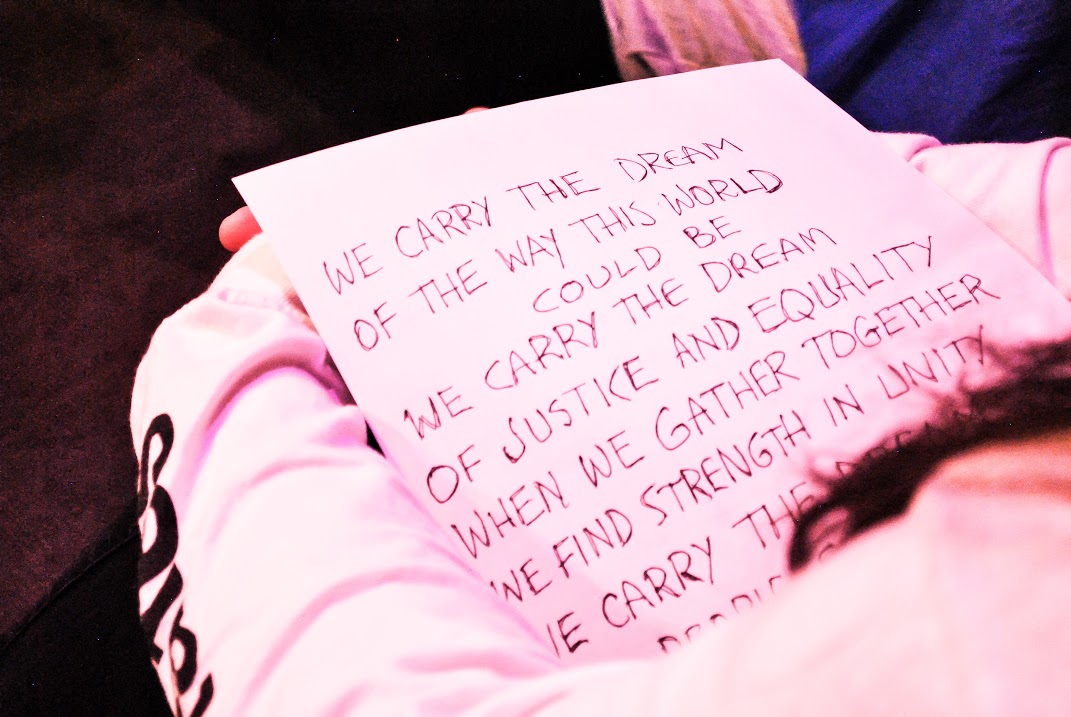 WE CARRY THE DREAM
OF THE WAY THIS WORLD
COULD BE
WE CARRY THE DREAM
OF JUSTICE AND EQUALITY
WHEN WE GATHER TOGETHER
WE FIND STRENGTH IN UNITY
WE CARRY THE